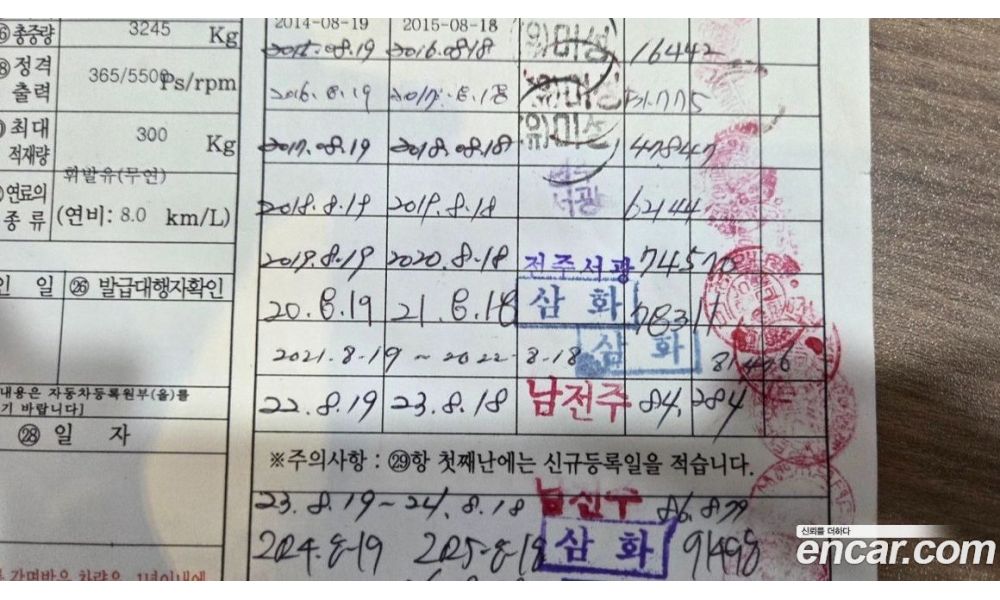 총중량 3245 Kg
정격출력 365/5500 Ps/rpm
최대적재량 300 Kg
연료의 종류 휘발유(무연) (연비: 8.0 km/L)
인 일 ㉖ 발급대행자확인
내용은 자동차등록원부(을)를
기 바랍니다]
㉘ 일 자
2014-08-19 2015-08-18
2015.08.19 2016.0818 미성 16442
2016.8.19 2017.8.18 미성
2017.08.19 2018.08.18 유미성 47847
2018.8.19 2019.8.18 서광 62144
2019.8.19 2020.8.18 전주서광 74570
20.8.19 21.8.18 삼화 78317
2021.8-19 ~ 2022-8-18 삼화 81476
22.8.19 23.8.18 남전주 84,284
※주의사항 : ㉙항 첫째난에는 신규등록일을 적습니다.
23.8.19~24.8.18 남전주 86.879
2024.8-19 2025-8-18 삼화 91498
신뢰를 더하다
encar.com